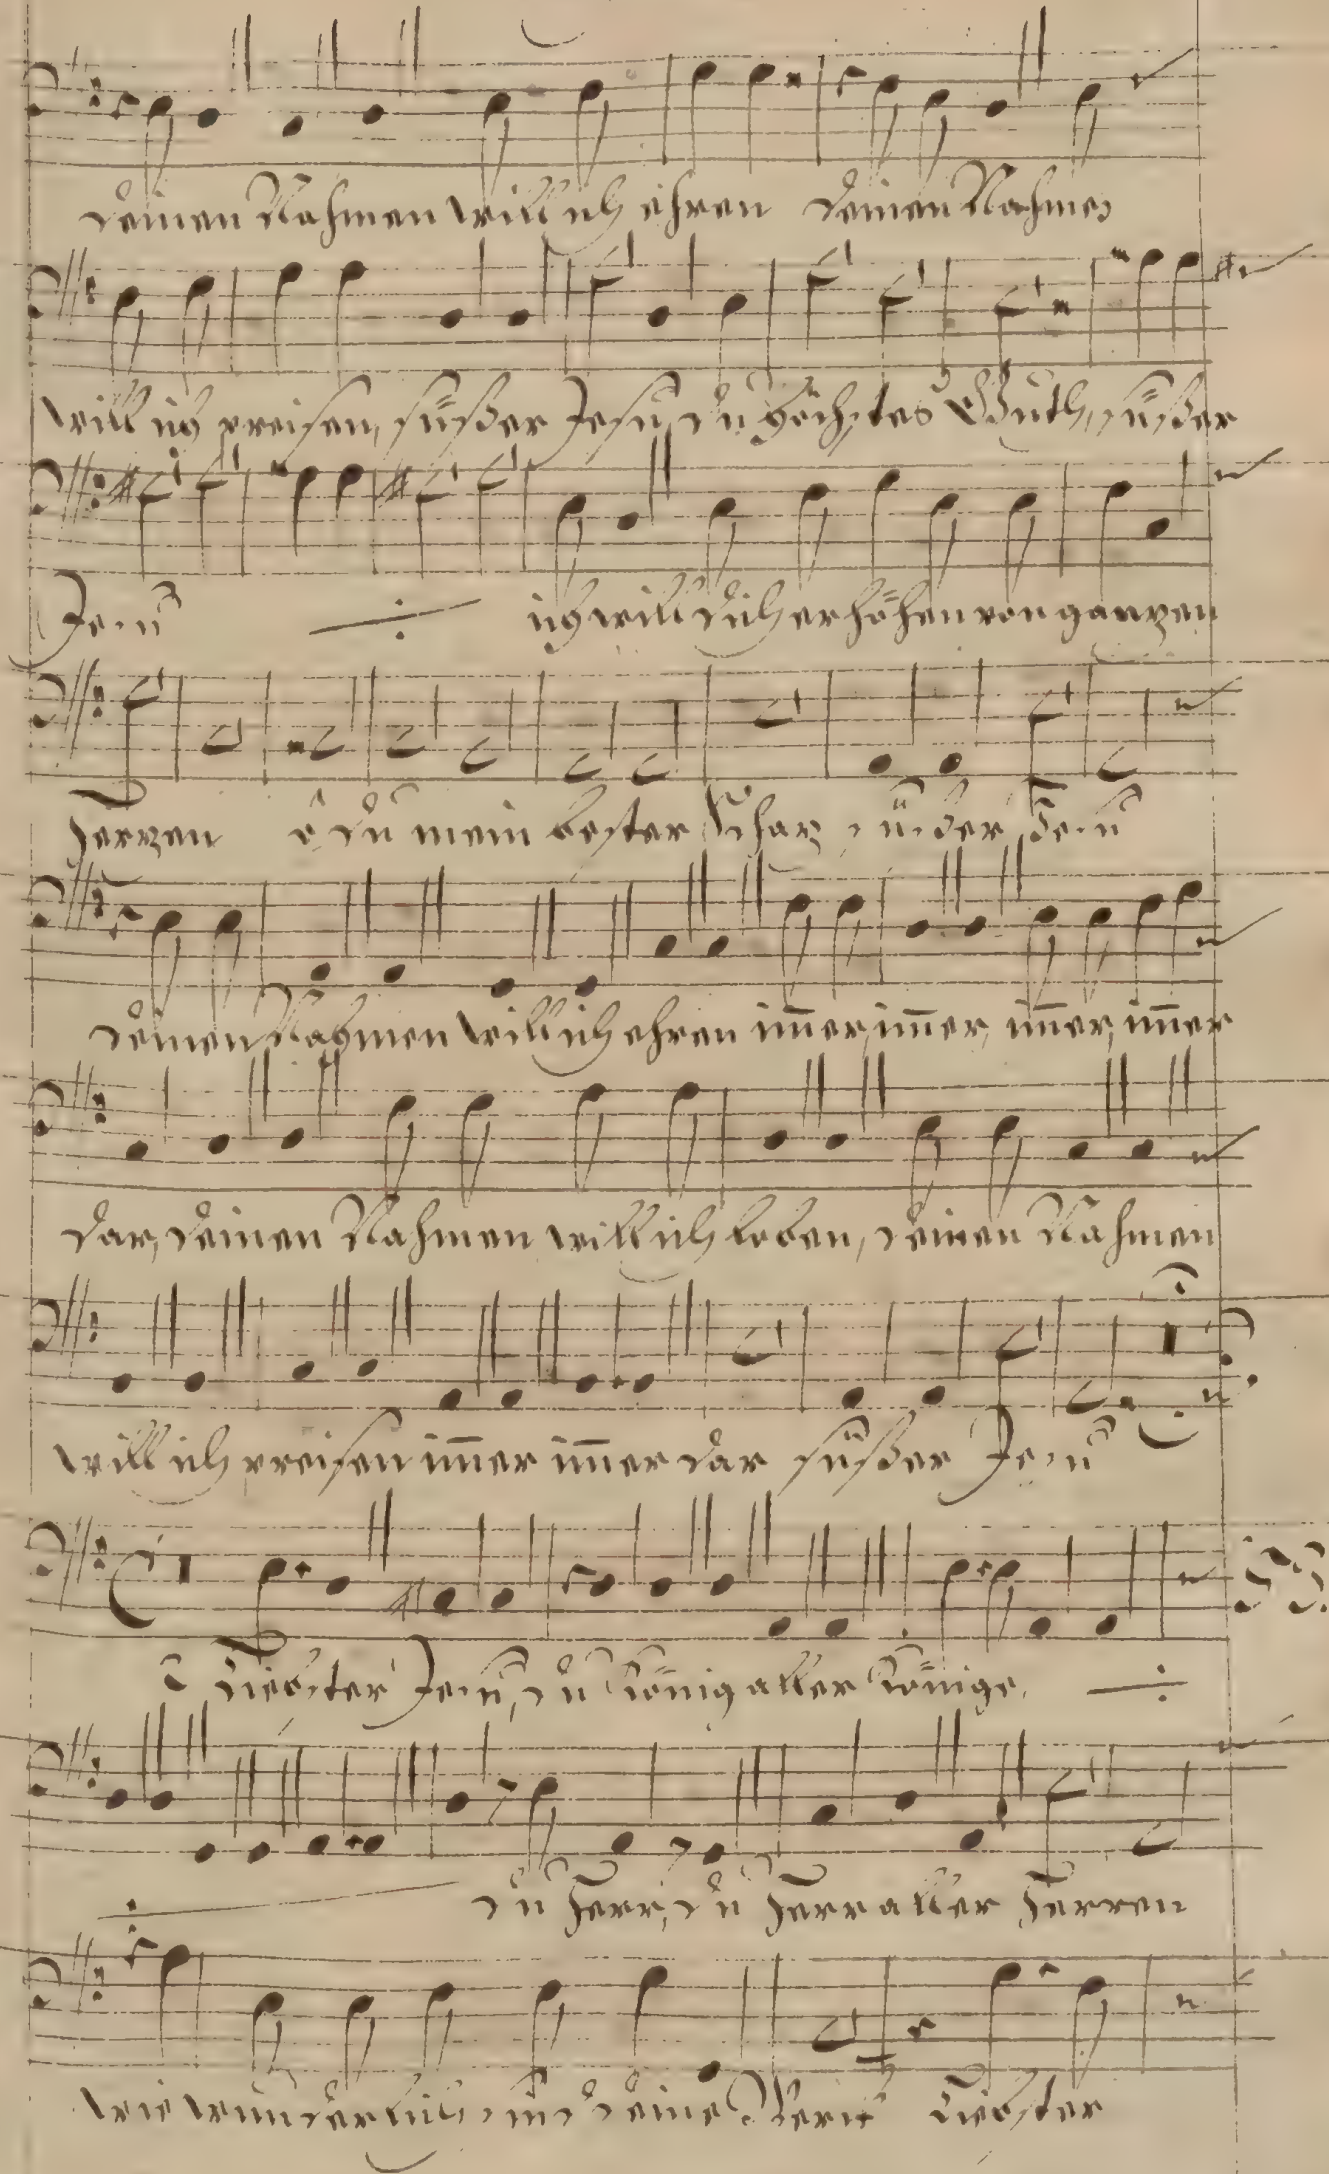 deinen Nahmen will ich ehren deinen Nahmen
will ich preisen, süßer Jesu, du höchstes Guth, süßer
Jesu ich will dich erhöhen von ganzen
Herzen o du mein bester Schaz, süßer Jesu
deinen Nahmen will ich ehren im̅er, im̅er, im̅er, im̅er
dar, deinen Nahmen will ich loben, deinen Nahmen
will ich preisen im̅er im̅er dar süßer Jesu
Liebster Jesu, du König aller Könige,
du Herr, du Herr aller Herren
wie wunderlich sind deine Werck Liebster